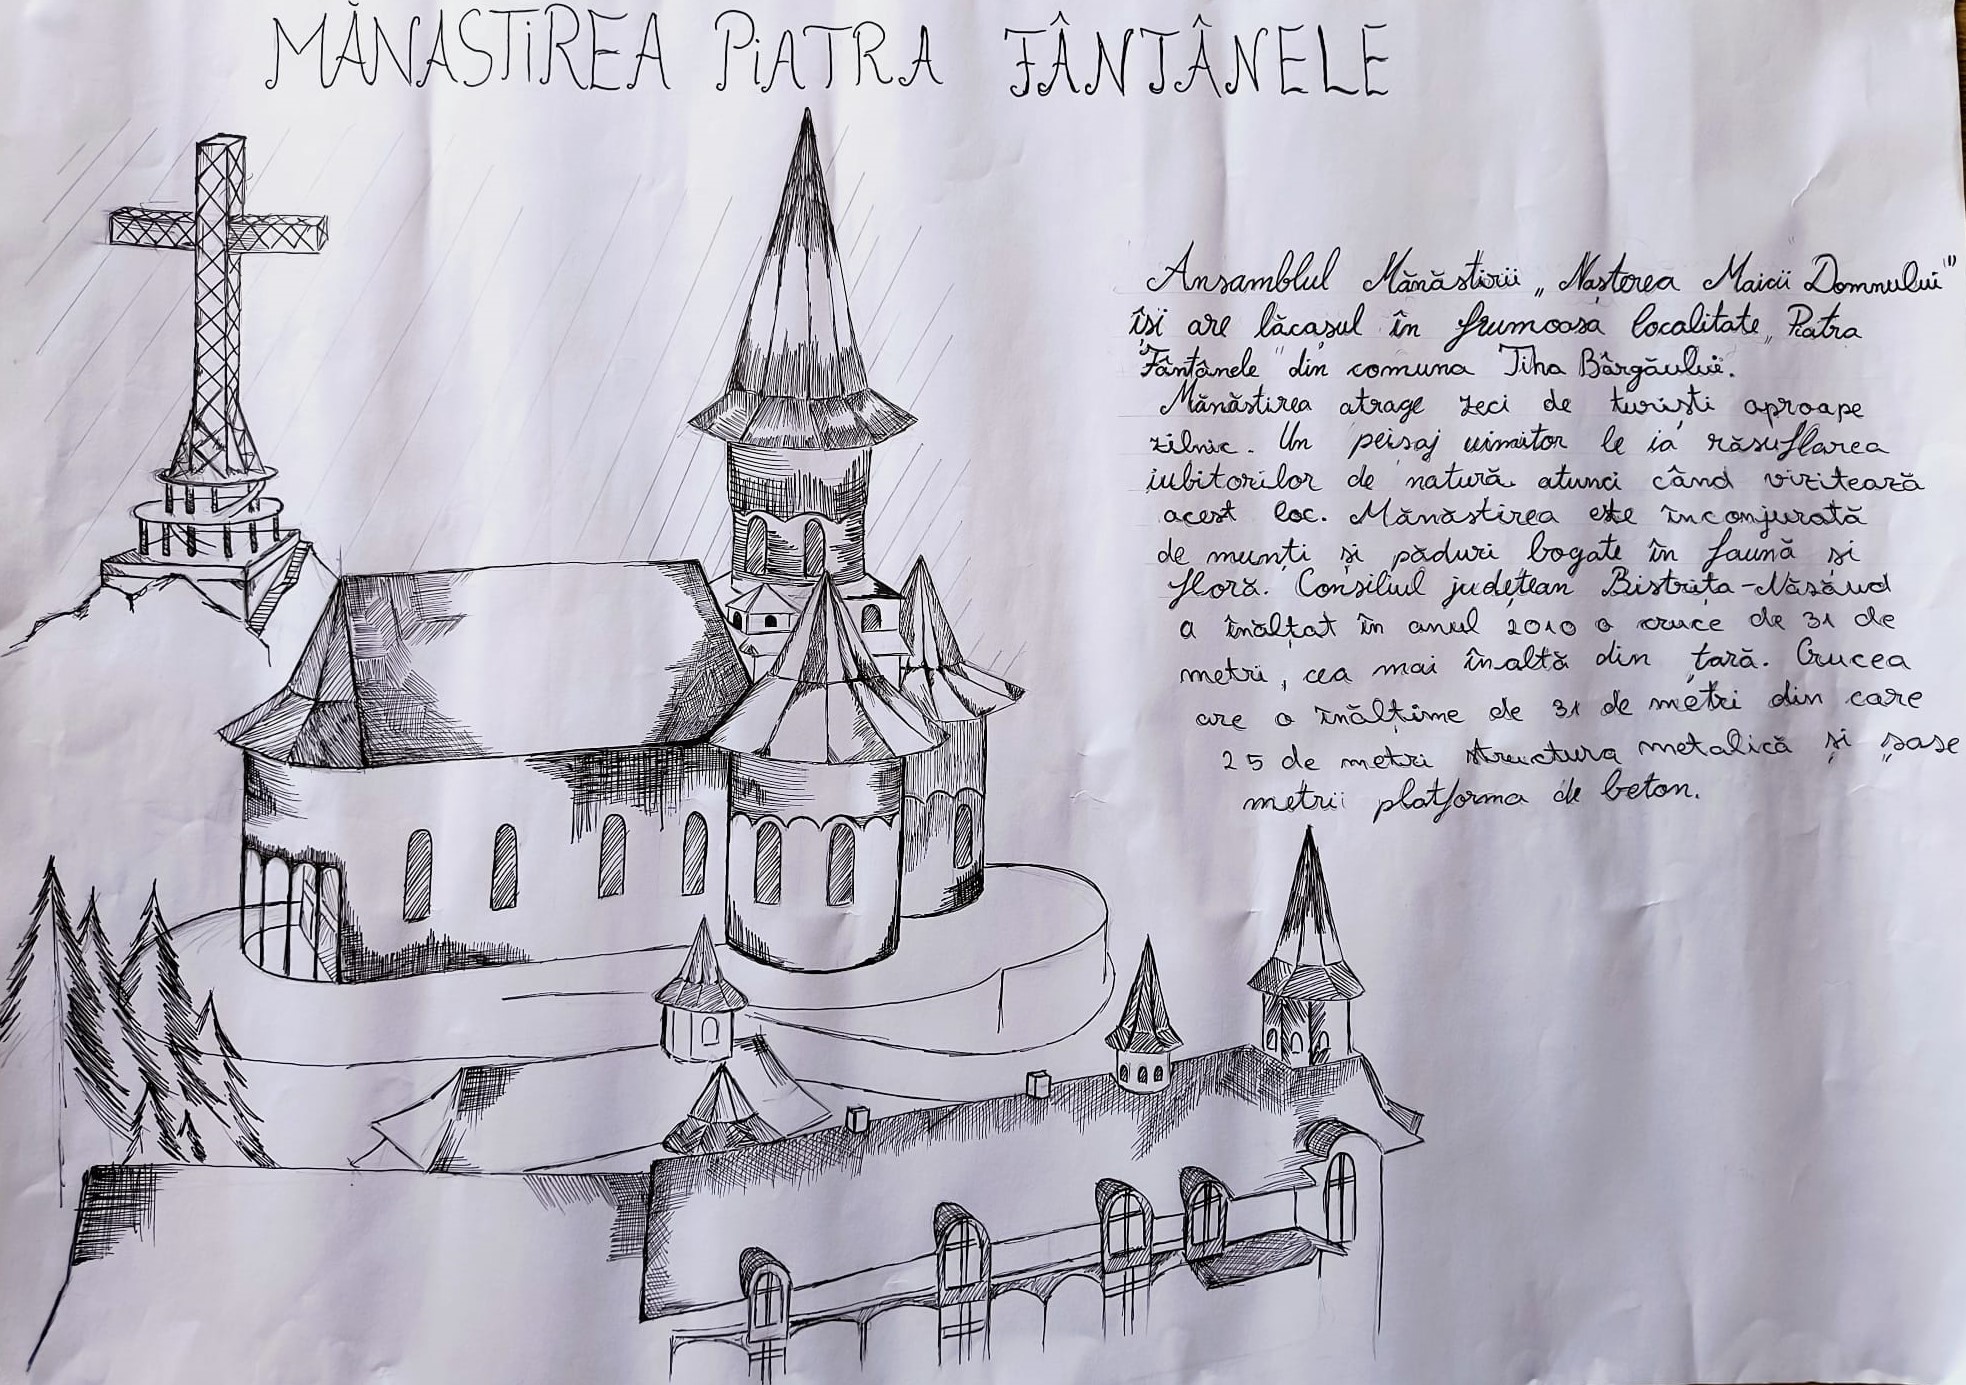 MĂNASTIREA PIATRA FÂNTÂNELE
Ansamblul Mănăstirii „Nașterea Maicii Domnului”
își are lăcașul în frumoasa localitate „Piatra
Fântânele” din comuna Tiha Bârgăului.
Mănăstirea atrage zeci de turiști aproape
zilnic. Un peisaj uimitor le ia răsuflarea
iubitorilor de natură atunci când vizitează
acest loc. Mănăstirea este înconjurată
de munți și păduri bogate în faună și
floră. Consiliul județean Bistrița-Năsăud
a înălțat în anul 2010 o cruce de 31 de
metri, cea mai înaltă din țară. Crucea
are o înălțime de 31 de metri din care
25 de metri structura metalică și șase
metrii platforma de beton.